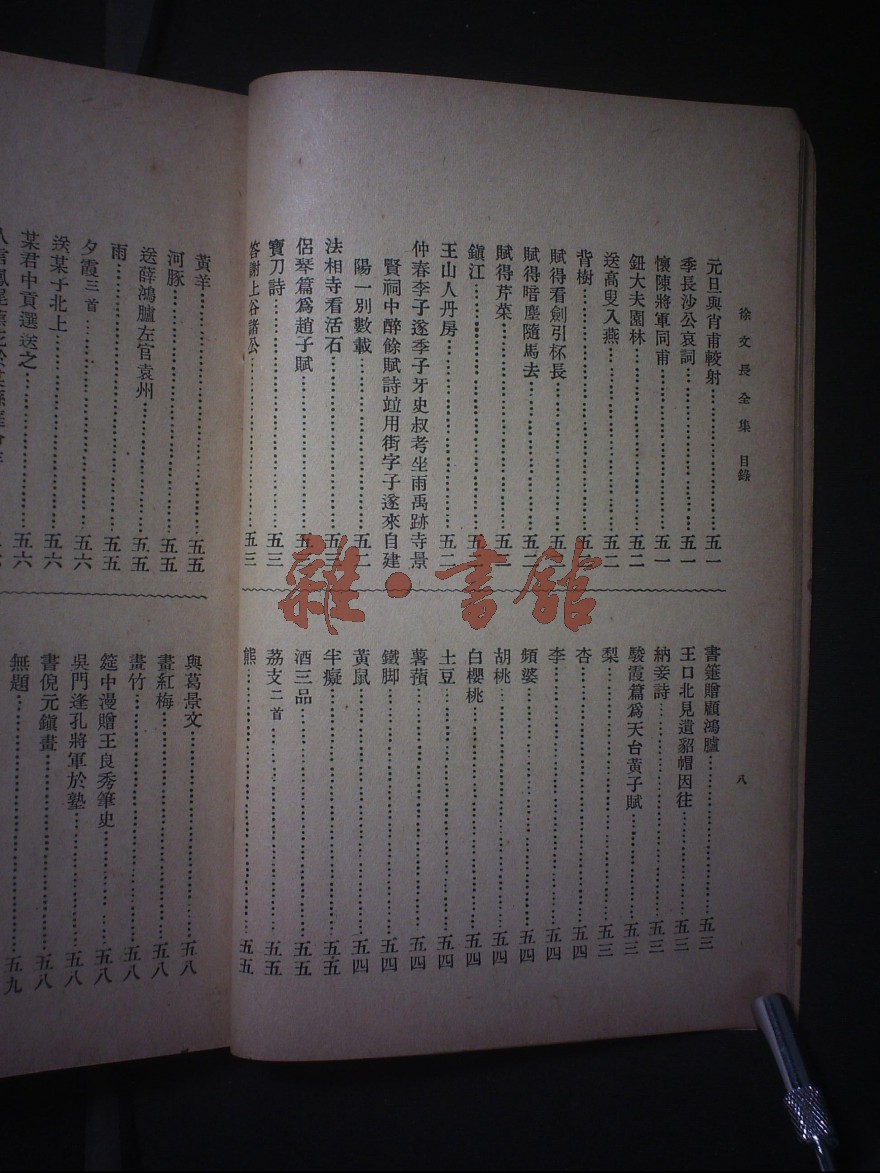 徐文長全集　目錄
八
元旦與肖甫較射…五一
季長沙公哀詞…五一
懷陳將軍同甫…五一
鈕大夫園林…五二
送高叟入燕…五二
背樹…五二
賦得看劍引杯長…五二
賦得暗塵隨馬去…五二
賦得芹菜…五二
鎭江…五二
王山人丹房…五二
仲春李子遂季子牙史叔考坐雨禹跡寺景
賢祠中醉餘賦詩竝用街字子遂來自建
陽一別數載…五二
法相寺看活石…五三
侶琴篇爲趙子賦…五三
寶刀詩…五三
答謝上谷諸公…五三
書箑贈顧鴻臚…五三
王口北見遺貂帽因往…五三
納妾詩…五三
駿霞篇爲天台黃子賦…五三
梨…五三
杏…五四
李…五四
頻婆…五四
胡桃…五四
白櫻桃…五四
土豆…五四
薯蕷…五四
鐵脚…五四
黃鼠…五四
半癡…五五
酒三品…五五
荔支二首…五五
熊…五五
黃羊…五五
河豚…五五
送薛鴻臚左官袁州…五五
雨…五五
夕霞三首…五六
送某子北上…五六
某君中貢選送之…五六
與葛景文…五八
畫紅梅…五八
畫竹…五八
筵中漫贈王良秀筆史…五八
吳門逢孔將軍於塾…五八
書倪元鎭畫…五八
無題…五九
雜·書館